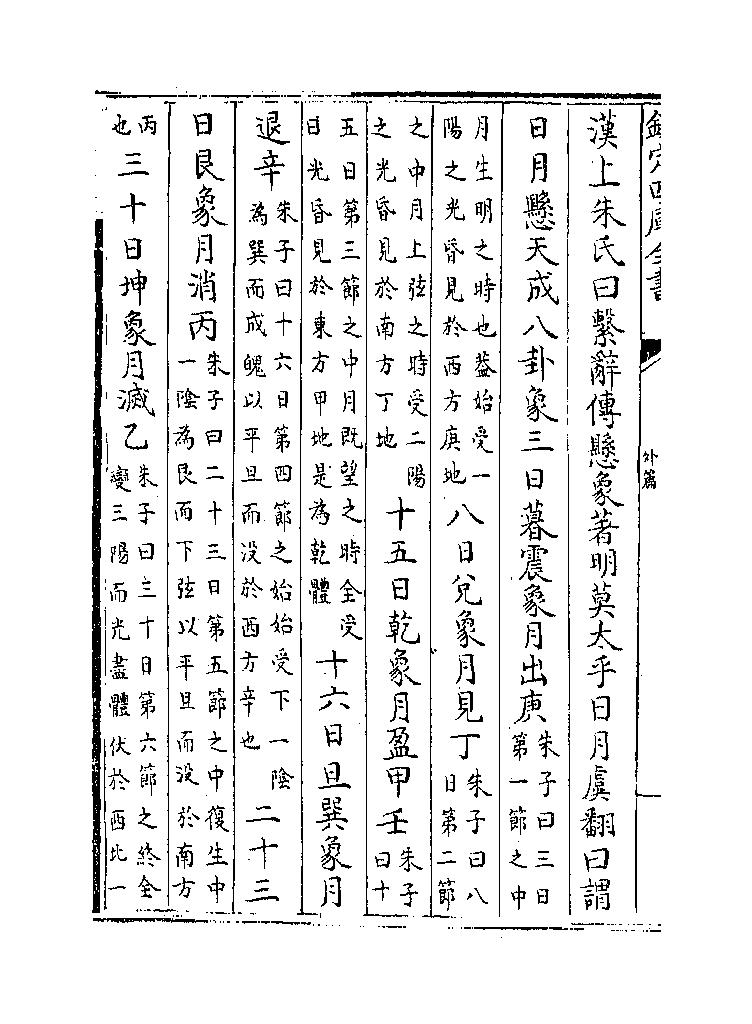 欽定四庫全書 外篇
漢上朱氏曰繫辭傳懸象著明莫太乎日月虞翻曰謂
日月懸天成八卦象三日暮震象月出庚朱子曰三日第一節之中
月生明之時也葢始受一陽之光昏見於西方庚地八日兌象月見丁朱子曰八日第二節
之中月上弦之時受二陽之光昏見於南方丁地十五日乾象月盈甲壬朱子曰十
五日第三節之中月既望之時全受日光昏見於東方甲地是為乾體十六日旦巽象月
退辛朱子曰十六日第四節之始始受下一陰為巽而成魄以平旦而没於西方辛也二十三
日艮象月消丙朱子曰二十三日第五節之中復生中一陰為艮而下弦以平旦而没於南方
丙也三十日坤象月滅乙朱子曰三十日第六節之終全變三陽而光盡體伏於西北一